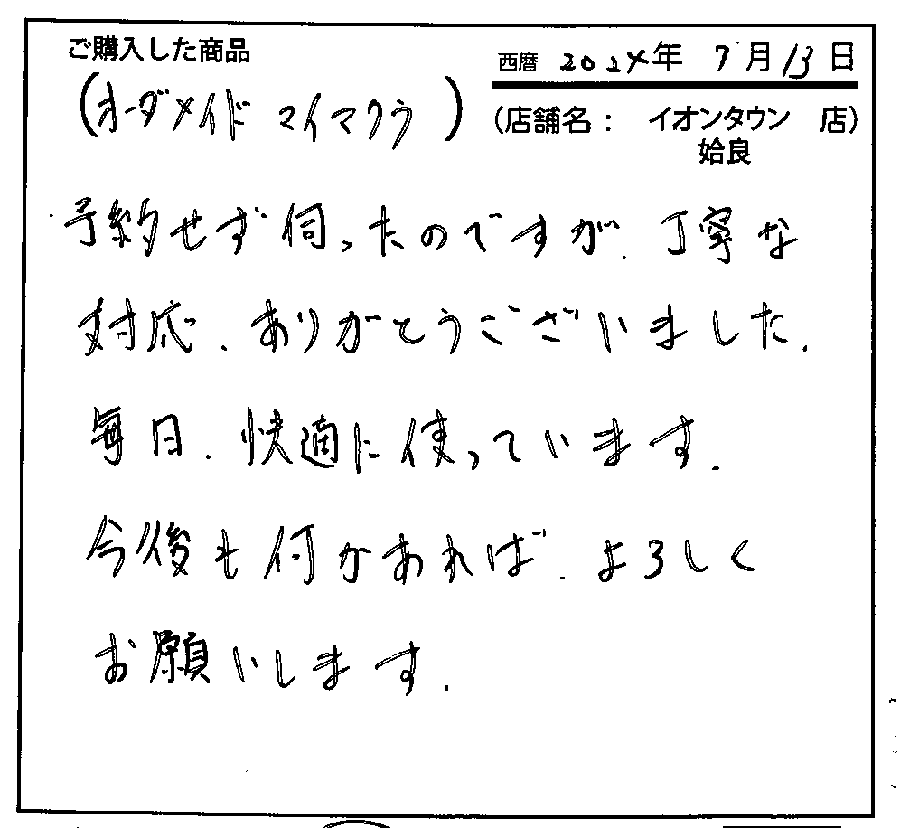 ご購入した商品
西暦 2024年 7月13日
(オーダメイド マイマクラ)
(店舗名: イオンタウン 店)
姶良
予約せず伺ったのですが、丁寧な
対応、ありがとうございました。
毎日、快適に使っています。
今後も何かあれば、よろしく
お願いします。